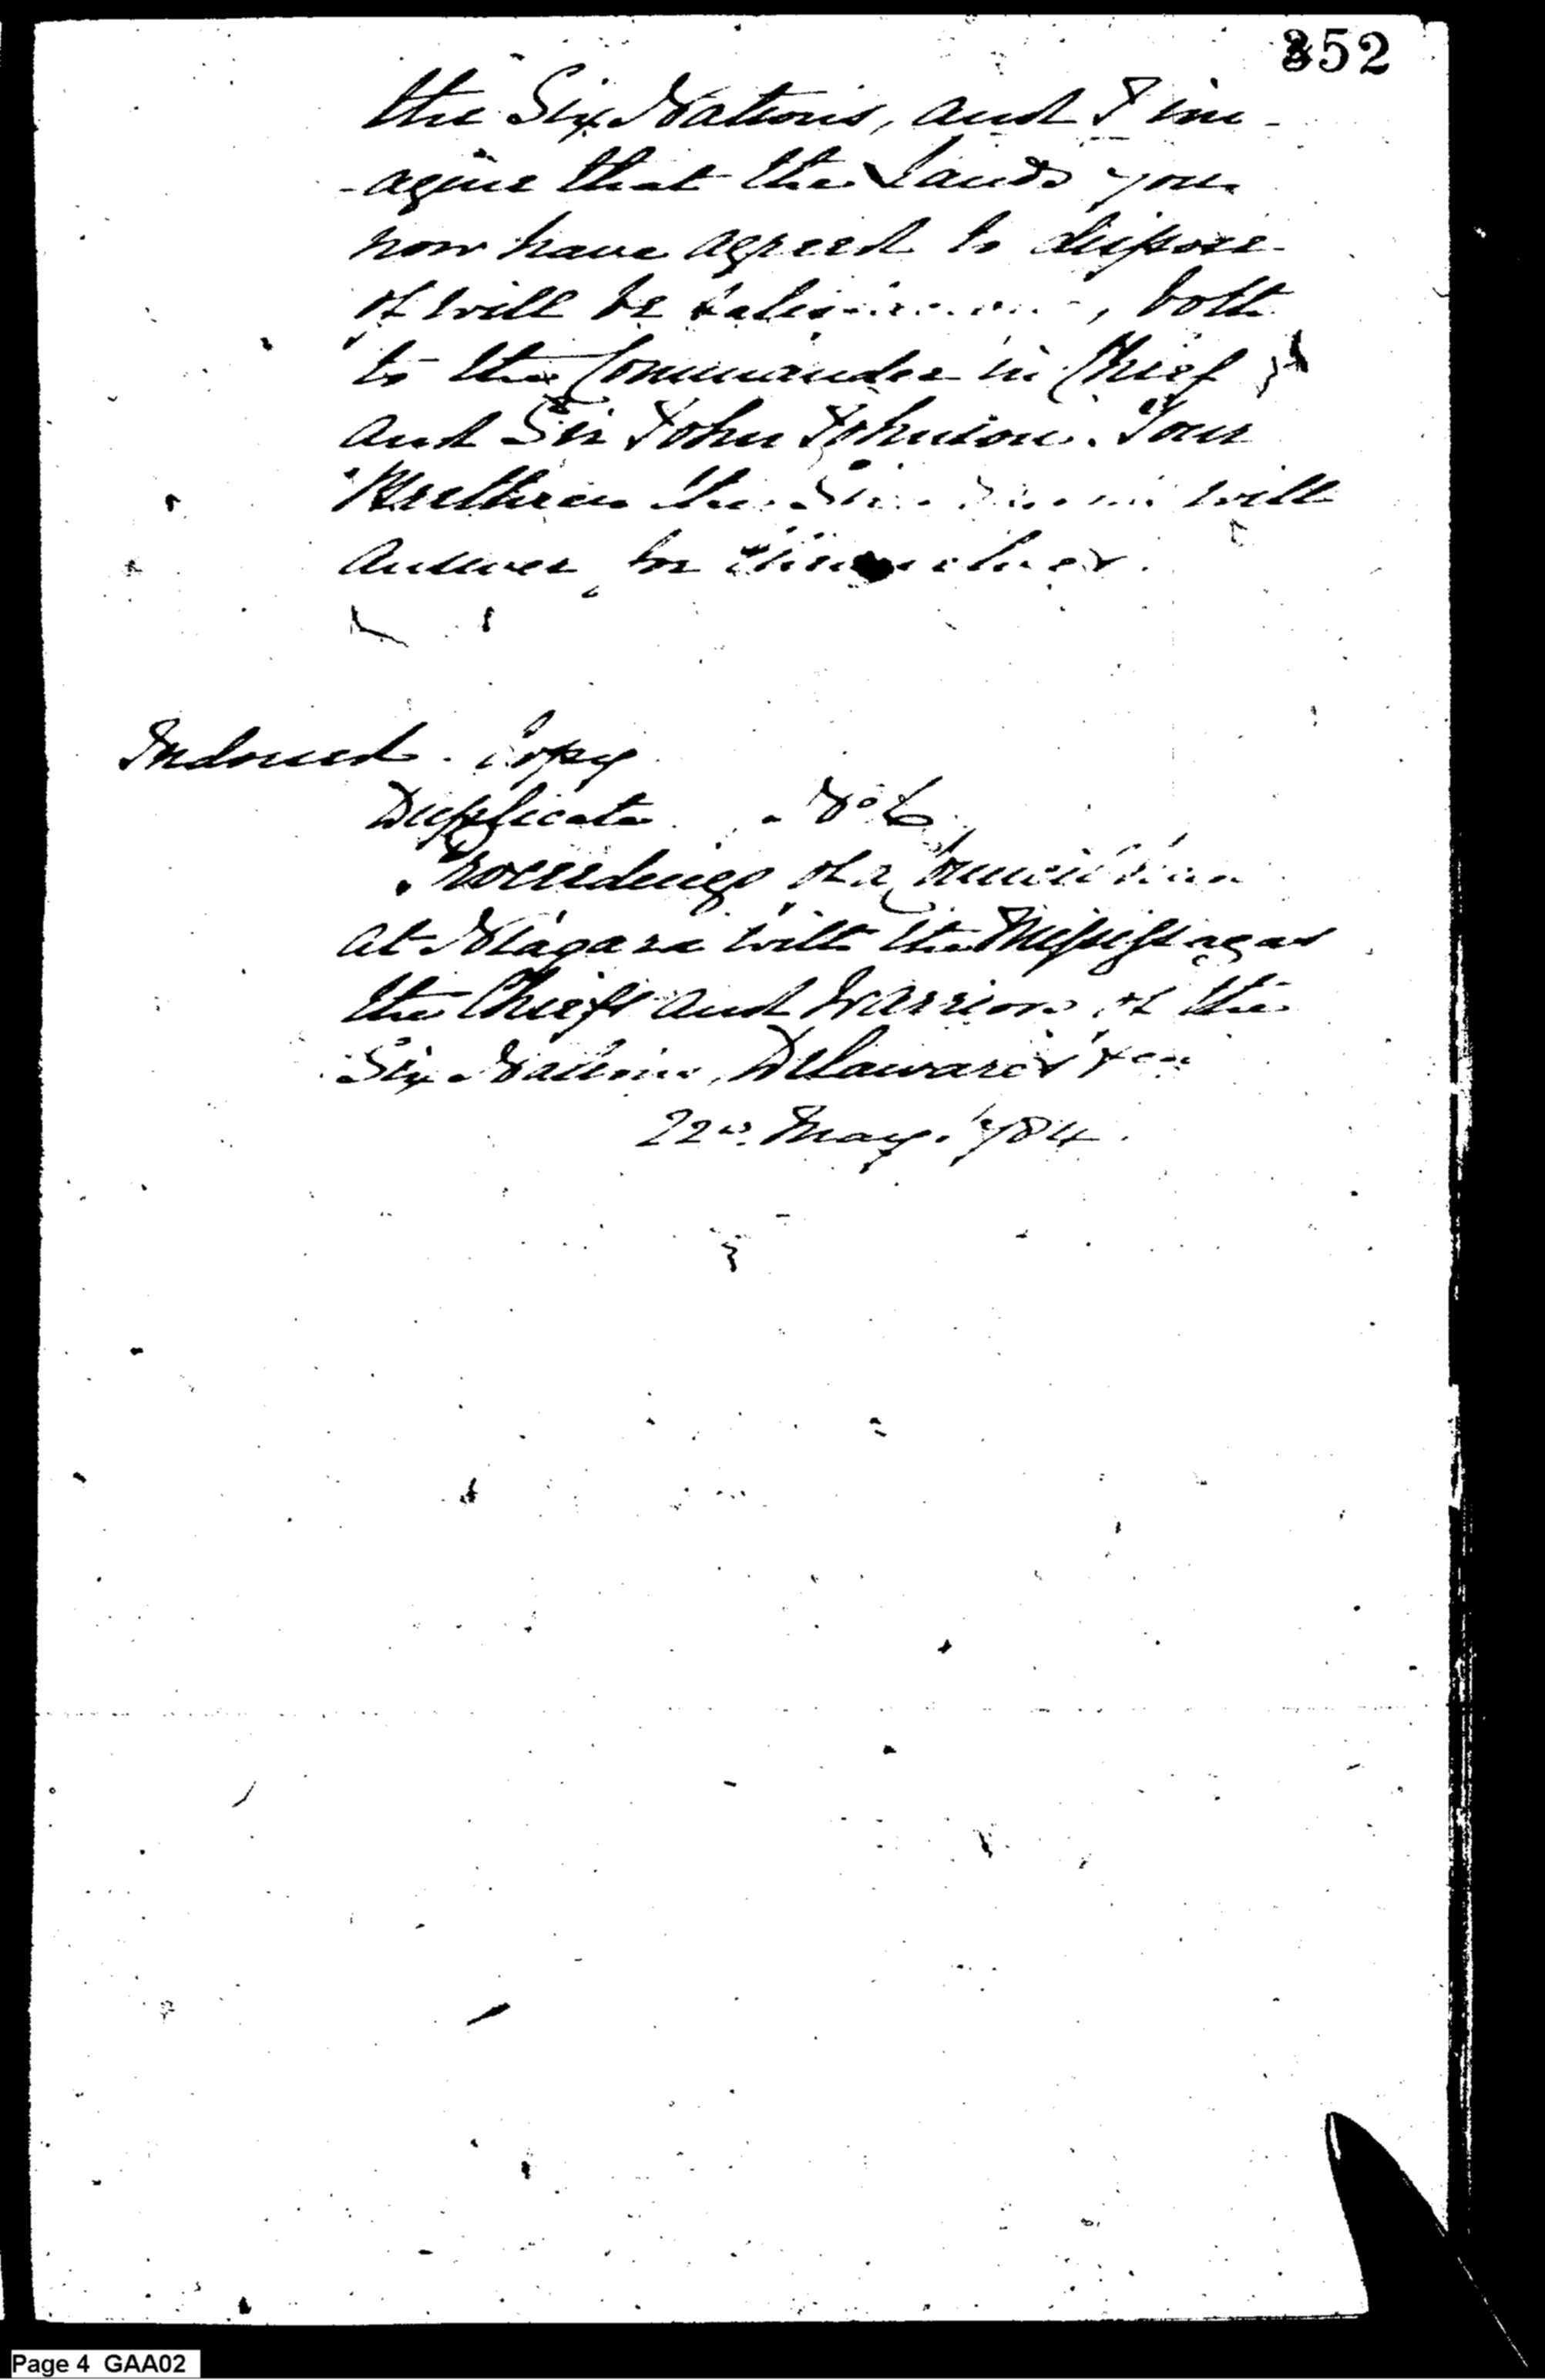 352
the Six Nations, and I im-
-agine that the Lands you
now have agreed to dispose
of will be , both
to the Commander in Chief
and Sir John Johnson. Your
Brethren the will
Answer for themselves.
Indorsed. Copy
Duplicate. No 6.
Proceedings of a Council
at Niagara with the Mississagas
the Chiefs and Warriors of the
Six Nations, Delawares &ca
22d. May. 1784.
Page 4 GAA02